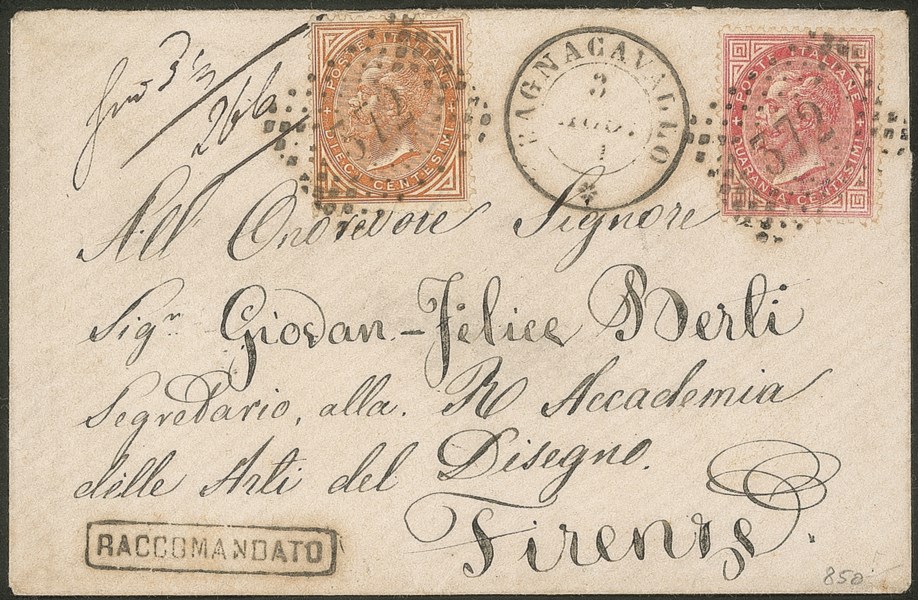 3
266
POSTE ITALIANE
DIECI CENTESIMI
572
BAGNACAVALLO
3
POSTE ITALIANE
QUARANTA CENTESIMI
572
All' Onorevole Signore
Sigr Giovan-Felice Berti
Segretario, alla. R Accademia
delle Arti del Disegno.
Firenze
RACCOMANDATO
850